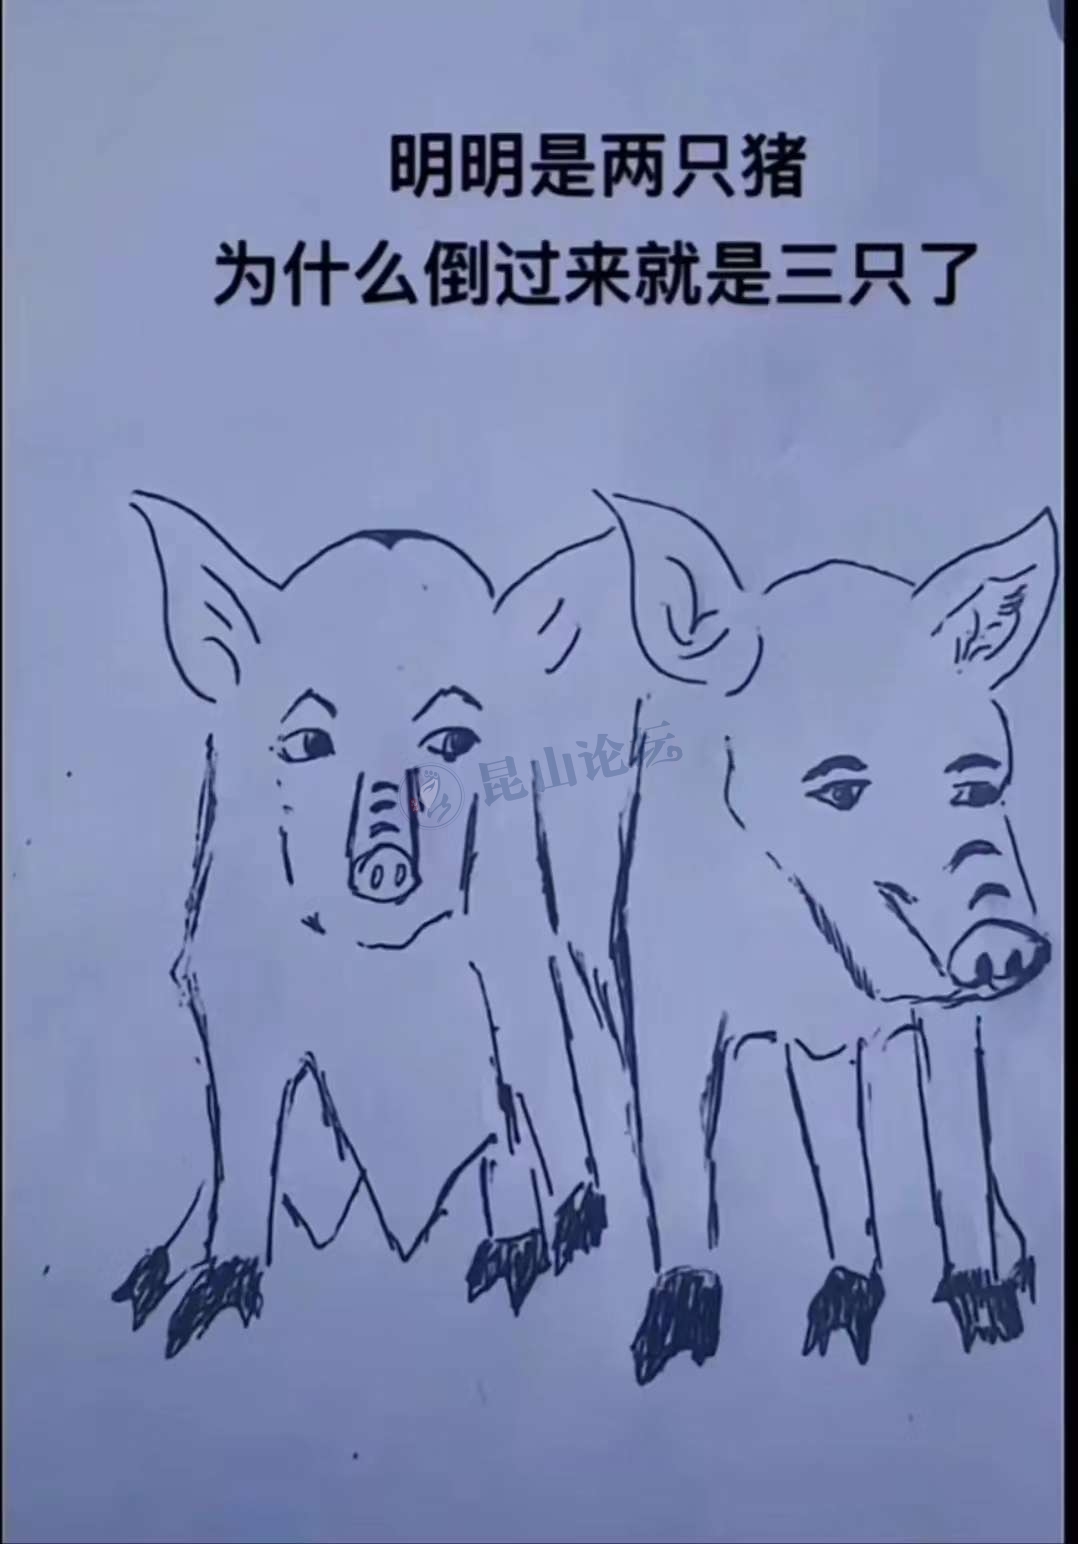 明明是两只猪
为什么倒过来就是三只了
昆山论坛